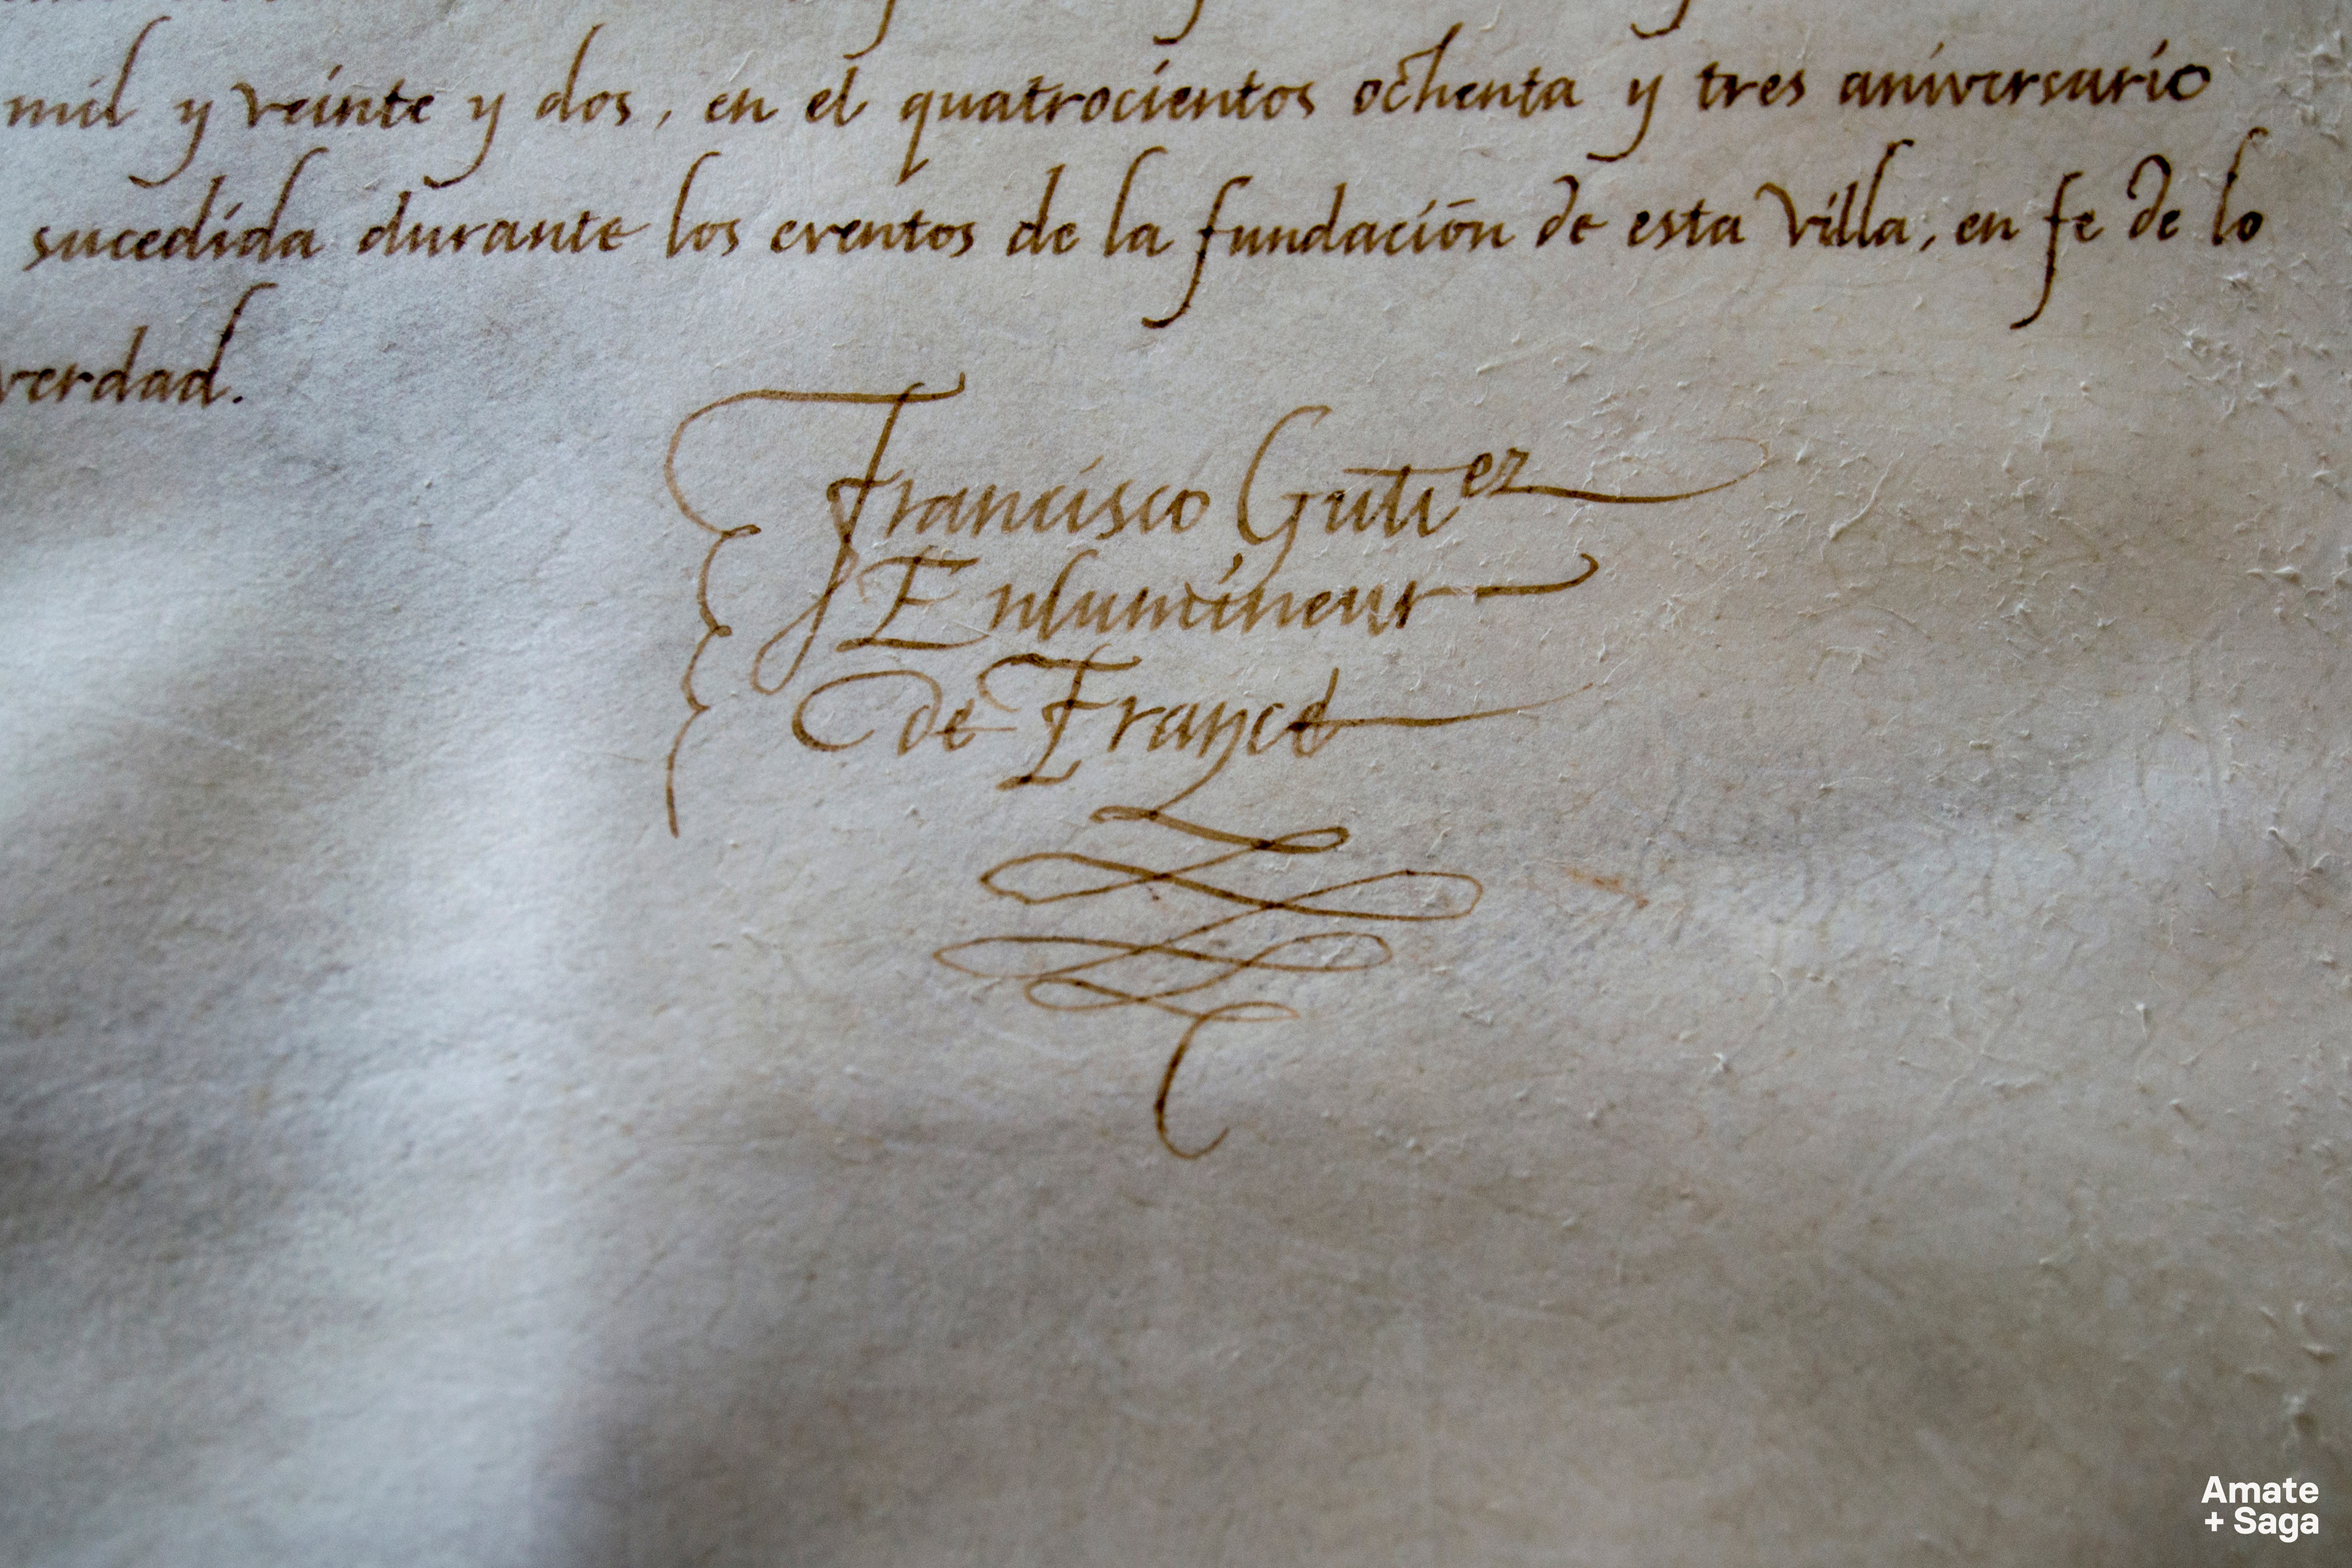 mil y veinte y dos, en el quatrocientos ochenta y tres aniversario
sucedida durante los eventos de la fundación de esta Villa, en fe de lo
verdad.
Francisco Gutiez
Enlumineur
de France
Amate
+ Saga